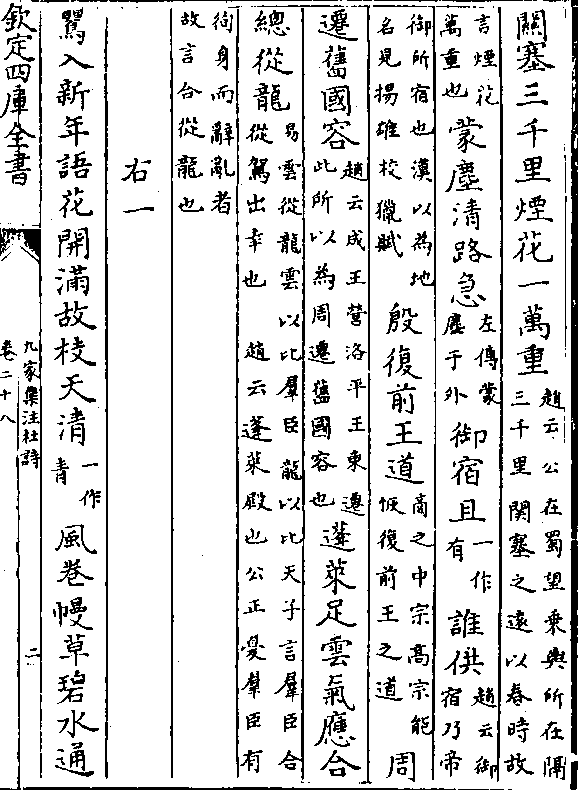 關塞三千里煙花一萬重趙云公在蜀望乘輿所在隔三千里關塞之遠以春時故
言煙花萬重也蒙塵清路急左傳蒙塵于外御宿且一作有誰供趙云御宿乃帝
御所宿也漢以為地名見揚雄校獵賦殷復前王道商之中宗髙宗能恢復前王之道周
遷舊國容趙云成王營洛平王東遷此所以為周遷舊國容也蓬萊足雲氣應合
總從龍易雲從龍雲以比羣臣龍以比天子言羣臣合從駕出幸也趙云蓬萊殿也公正憂羣臣有
徇身而辭亂者故言合從龍也
右一
鶯入新年語花開滿故枝天清一作青風卷幔草碧水通
欽定四庫全書
九家集注杜詩
卷二十八
二